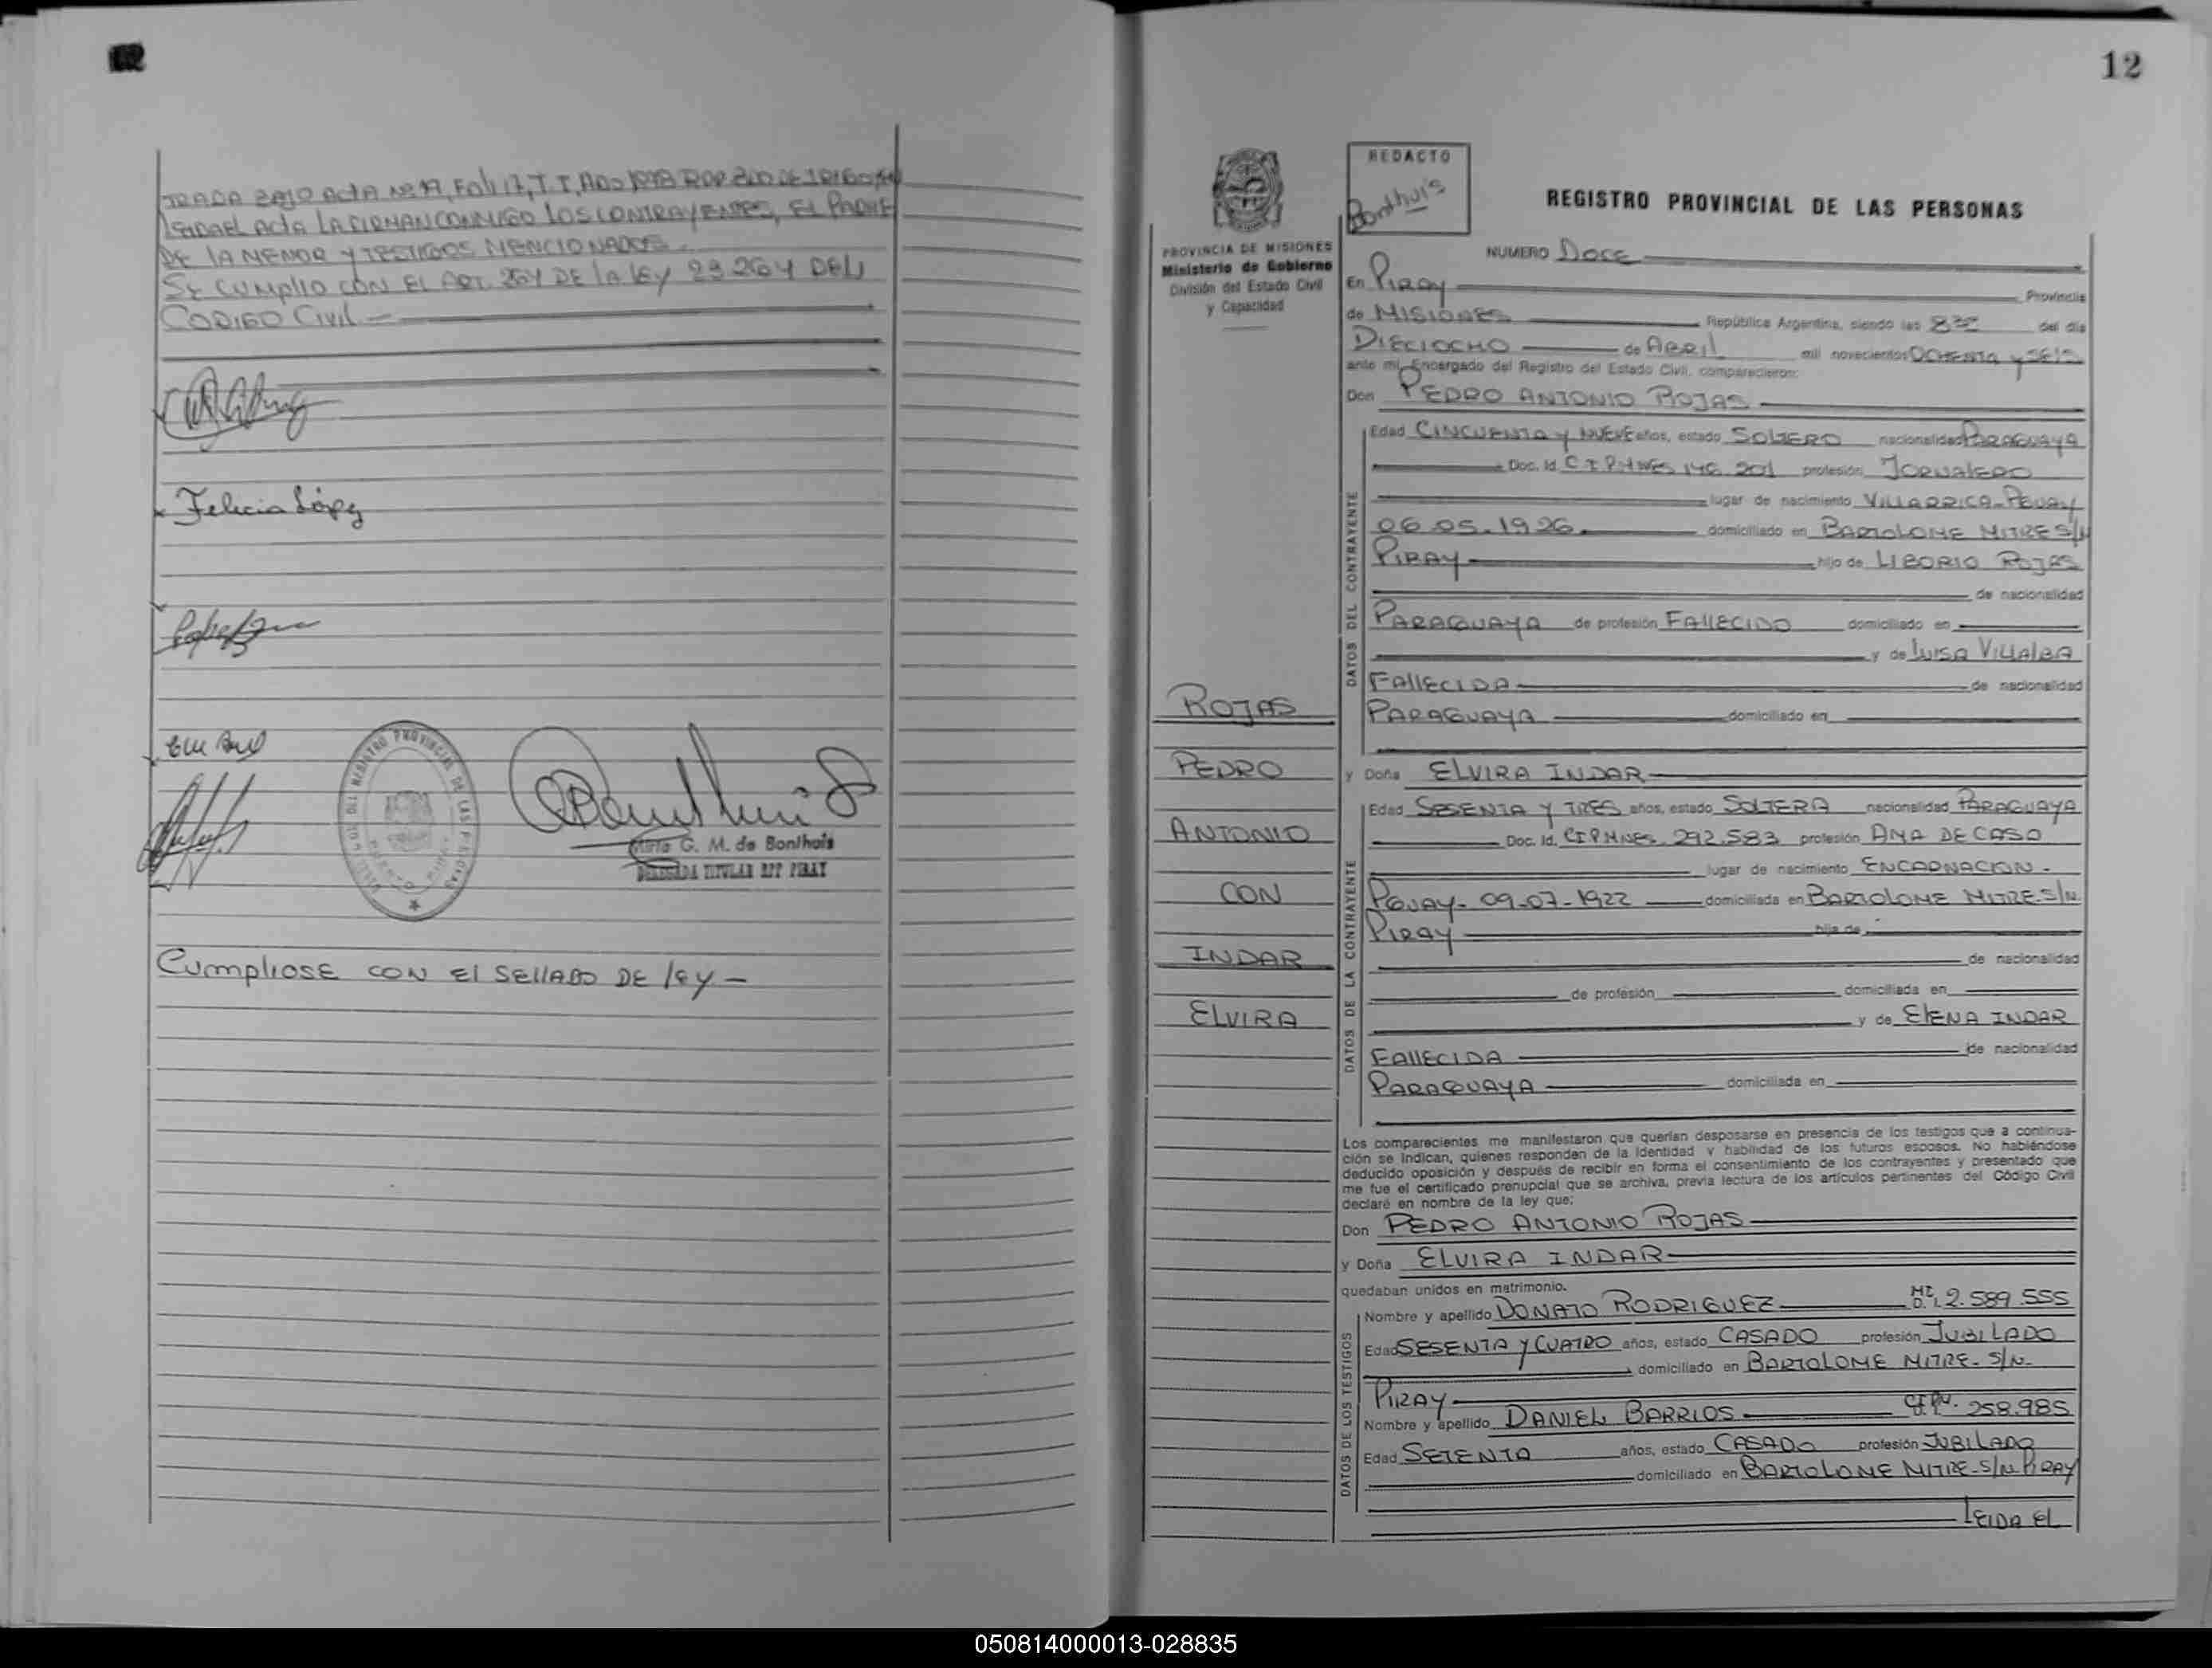 12
TRADA BAJO ACTA Nº 19, Folº 17, T. I, AÑO 1978 RPP.
LEIDA EL ACTA LA FIRMAN CONMIGO LOS CONTRAYENTES, EL PADRE
DE LA MENOR Y TESTIGOS MENCIONADOS.
SE CUMPLIO CON EL ART. 264 DE LA LEY 23264 DEL
CODIGO CIVIL
Felicia López
REGISTRO PROVINCIAL DE LAS PERSONAS
G. M. de Bonthuis
DELEGADA TITULAR RPP PIRAY
CUMPLIOSE CON EL SELLADO DE LEY -
PROVINCIA DE MISIONES
Ministerio de Gobierno
División del Estado Civil
y Capacidad
ROJAS
PEDRO
ANTONIO
CON
INDAR
ELVIRA
REDACTO
Bonthuis
REGISTRO PROVINCIAL DE LAS PERSONAS
NUMERO DOCE
En PIRAY Provincia
de MISIONES República Argentina, siendo las 8 del día
DIECIOCHO de ABRIL mil novecientos OCHENTA Y SEIS
ante mí, Encargado del Registro del Estado Civil, comparecieron:
Don PEDRO ANTONIO ROJAS
DATOS DEL CONTRAYENTE
Edad CINCUENTA Y NUEVE años, estado SOLTERO nacionalidad PARAGUAYA
Doc. Id. C.I.P.MNES 146.201 profesión JORNALERO
lugar de nacimiento VILLARRICA-PGUAY
06.05.1926 domiciliado en BARTOLOME MITRE S/N
PIRAY hijo de LIBORIO ROJAS
de nacionalidad
PARAGUAYA de profesión FALLECIDO domiciliado en
y de LUISA VILLALBA
FALLECIDA de nacionalidad
PARAGUAYA domiciliado en
y Doña ELVIRA INDAR
DATOS DE LA CONTRAYENTE
Edad SESENTA Y TRES años, estado SOLTERA nacionalidad PARAGUAYA
Doc. Id. C.I.P.MNES. 292.583 profesión AMA DE CASA
lugar de nacimiento ENCARNACION -
PGUAY- 09-07-1922 domiciliada en BARTOLOME MITRE-S/N.
PIRAY hija de
de nacionalidad
de profesión domiciliada en
y de ELENA INDAR
FALLECIDA de nacionalidad
PARAGUAYA domiciliada en
Los comparecientes me manifestaron que querían desposarse en presencia de los testigos que a continua-
ción se indican, quienes responden de la identidad y habilidad de los futuros esposos. No habiéndose
deducido oposición y después de recibir en forma el consentimiento de los contrayentes y presentado que
me fue el certificado prenupcial que se archiva, previa lectura de los artículos pertinentes del Código Civil
declaré en nombre de la ley que:
Don PEDRO ANTONIO ROJAS
y Doña ELVIRA INDAR
quedaban unidos en matrimonio.
DATOS DE LOS TESTIGOS
Nombre y apellido DONATO RODRIGUEZ 2.589.555
Edad SESENTA Y CUATRO años, estado CASADO profesión JUBILADO
domiciliado en BARTOLOME MITRE- S/N-
PIRAY
Nombre y apellido DANIEL BARRIOS 258.985
Edad SETENTA años, estado CASADO profesión JUBILADO
domiciliado en BARTOLOME MITRE-S/N PIRAY
LEIDA EL
050814000013-028835